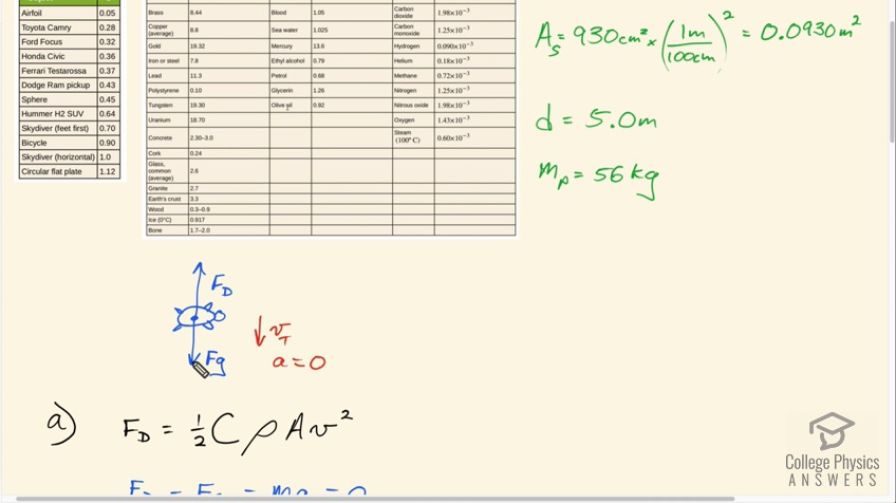 Airfoil 0.05
Toyota Camry 0.28
Ford Focus 0.32
Honda Civic 0.36
Ferrari Testarossa 0.37
Dodge Ram pickup 0.43
Sphere 0.45
Hummer H2 SUV 0.64
Skydiver (feet first) 0.70
Bicycle 0.90
Skydiver (horizontal) 1.0
Circular flat plate 1.12
Brass 8.44 Blood 1.05 Carbon dioxide 1.98×10⁻³
Copper (average) 8.8 Sea water 1.025 Carbon monoxide 1.25×10⁻³
Gold 19.32 Mercury 13.6 Hydrogen 0.090×10⁻³
Iron or steel 7.8 Ethyl alcohol 0.79 Helium 0.18×10⁻³
Lead 11.3 Petrol 0.68 Methane 0.72×10⁻³
Polystyrene 0.10 Glycerin 1.26 Nitrogen 1.25×10⁻³
Tungsten 19.30 Olive oil 0.92 Nitrous oxide 1.98×10⁻³
Uranium 18.70 Oxygen 1.43×10⁻³
Concrete 2.30–3.0 Steam (100° C) 0.60×10⁻³
Cork 0.24
Glass, common (average) 2.6
Granite 2.7
Earth's crust 3.3
Wood 0.3–0.9
Ice (0°C) 0.917
Bone 1.7–2.0
A_s = 930 cm² × (1m/100cm)² = 0.0930 m²
d = 5.0 m
m_p = 56 kg
F_D
v_T
Fg
a = 0
a) F_D = 1/2 C ρ A v²
= ma = 0
College Physics
ANSWERS